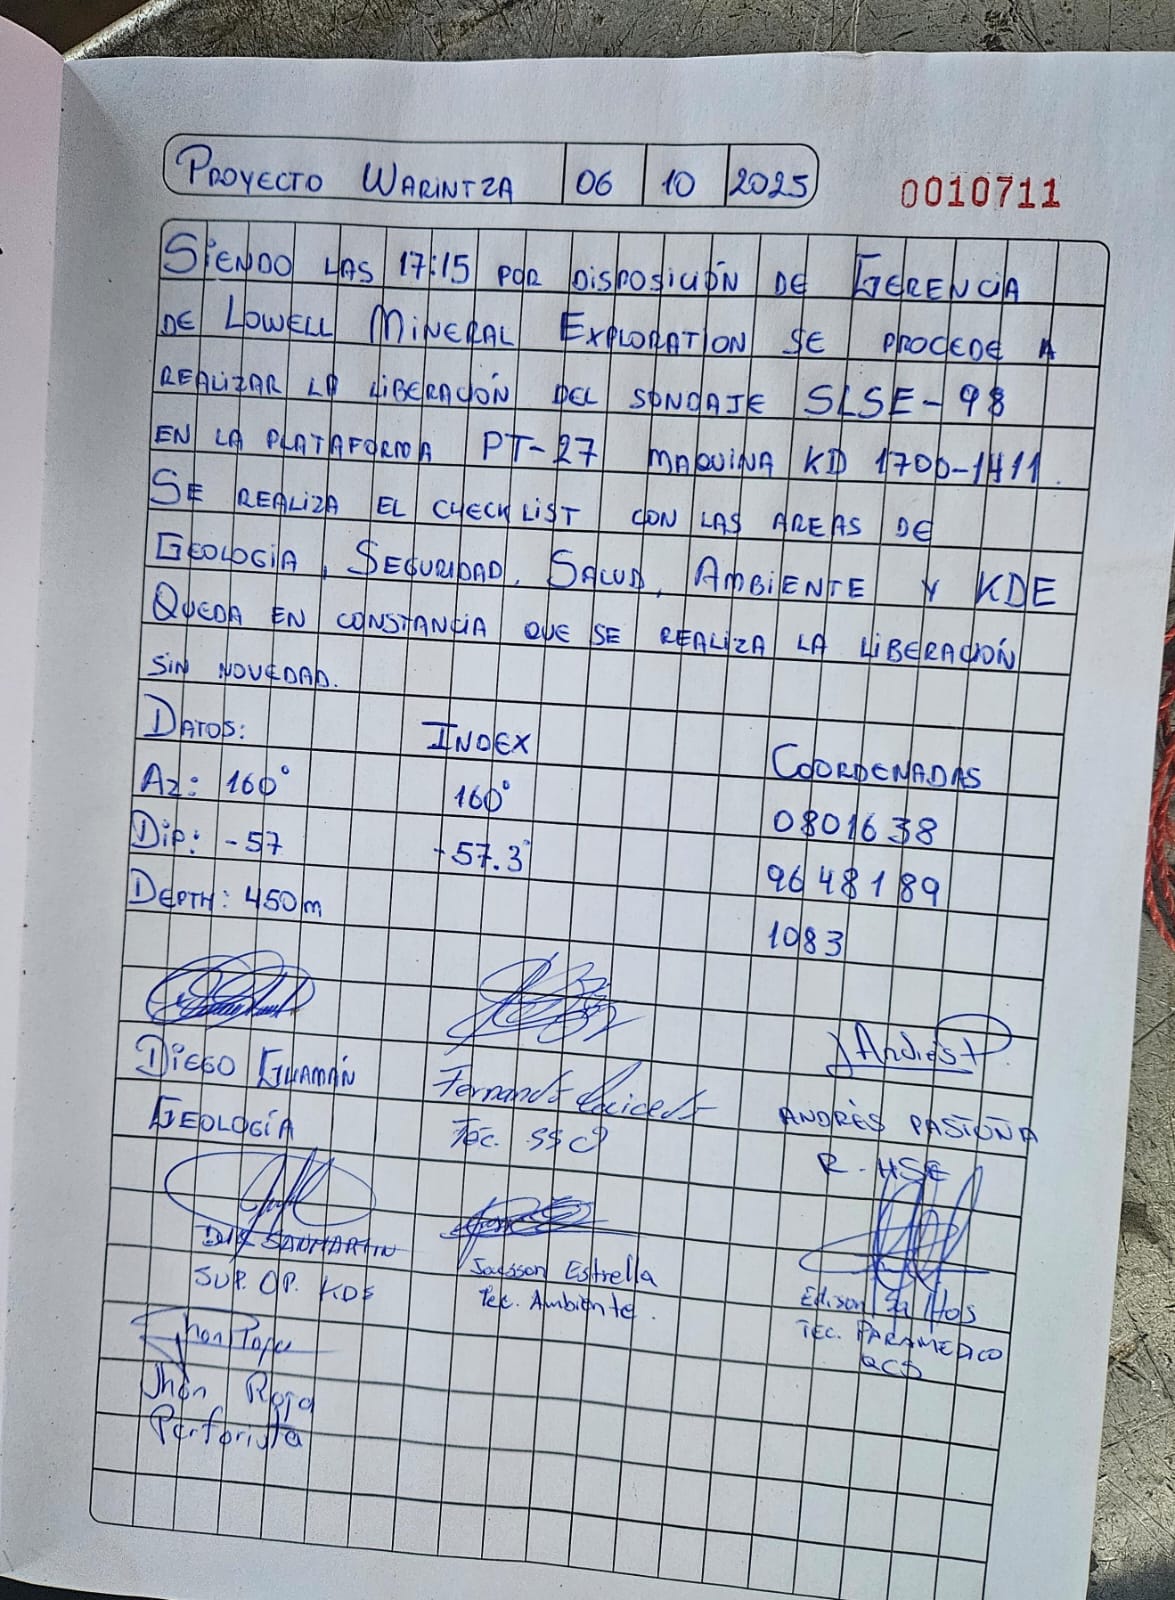 PROYECTO WARINTZA 06 10 2025
0010711
SIENDO LAS 17:15 POR DISPOSICIÓN DE GERENCIA
DE LOWELL MINERAL EXPLORATION SE PROCEDE A
REALIZAR LA LIBERACIÓN DEL SONDAJE SLSE-98
EN LA PLATAFORMA PT-27 MAQUINA KD 1700-1411.
SE REALIZA EL CHECK LIST CON LAS AREAS DE
GEOLOGIA, SEGURIDAD, SALUD, AMBIENTE Y KDE
QUEDA EN CONSTANCIA QUE SE REALIZA LA LIBERACIÓN
SIN NOVEDAD.
DATOS: INDEX COORDENADAS
AZ: 160° 160° 0801638
DIP: -57 -57.3° 9648189
DEPTH: 450m 1083
Andrés P.
DIEGO GUAMÁN Fernando ANDRÉS PASTUÑA
GEOLOGÍA Téc. R-HSE
SANMARTIN Estrella Edison
SUP. OP. KDE Tec. Ambiente. TEC. PARAMEDICO
Jhon Roja
Jhon Roja
Perforista